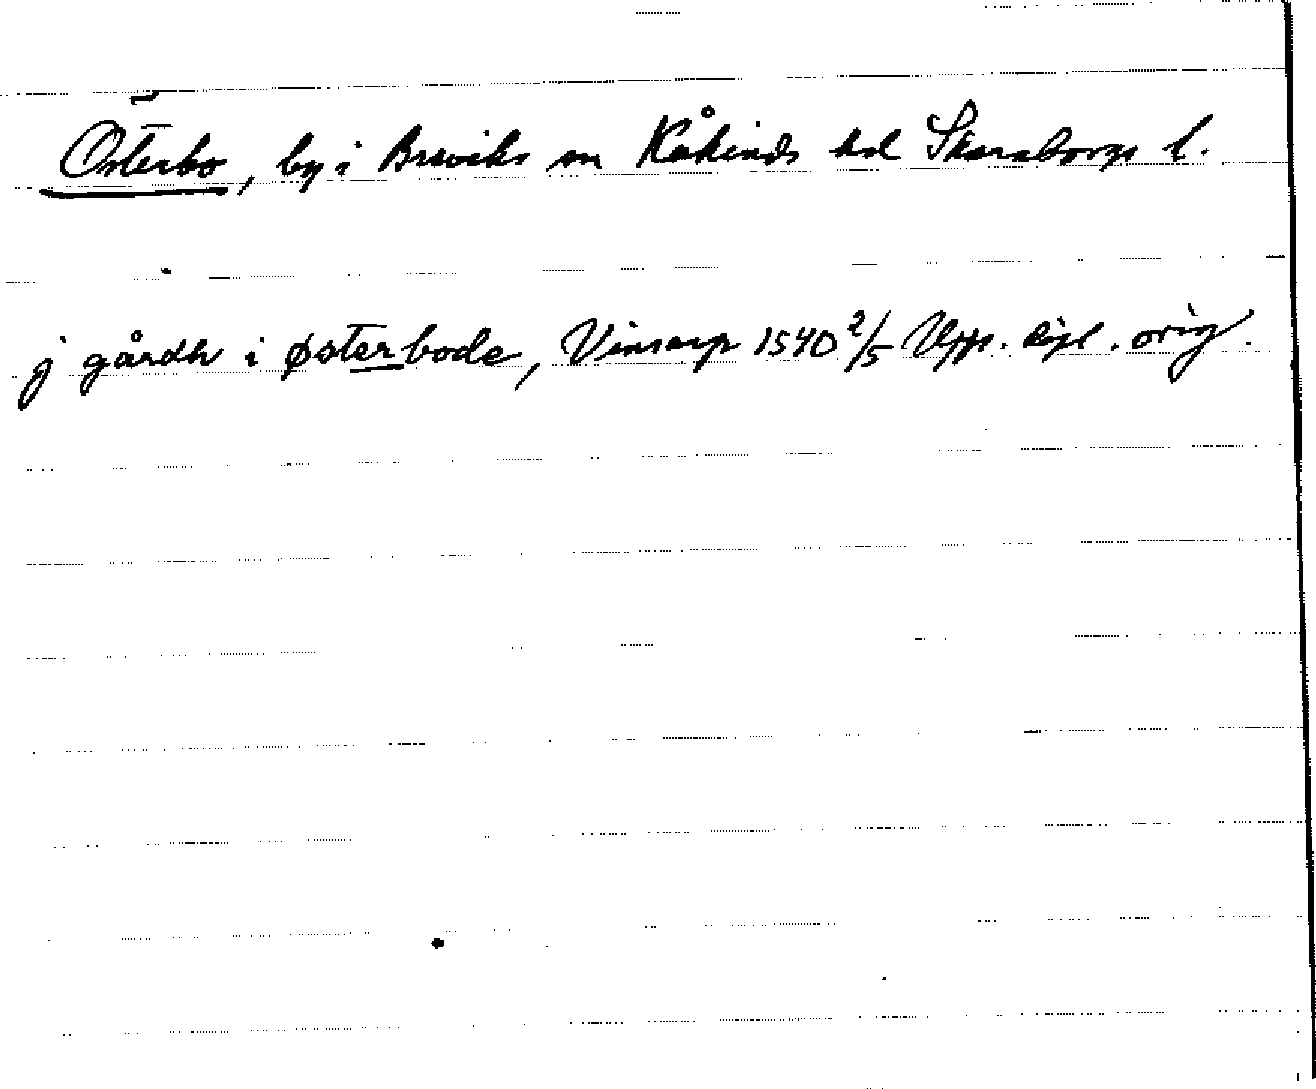 Österbo, by i Breviks sn Kåkinds hd Skaraborgs l.
j gårdh i østerbode, Vinsarp 1540 2/5 Upps. dipl. orig.